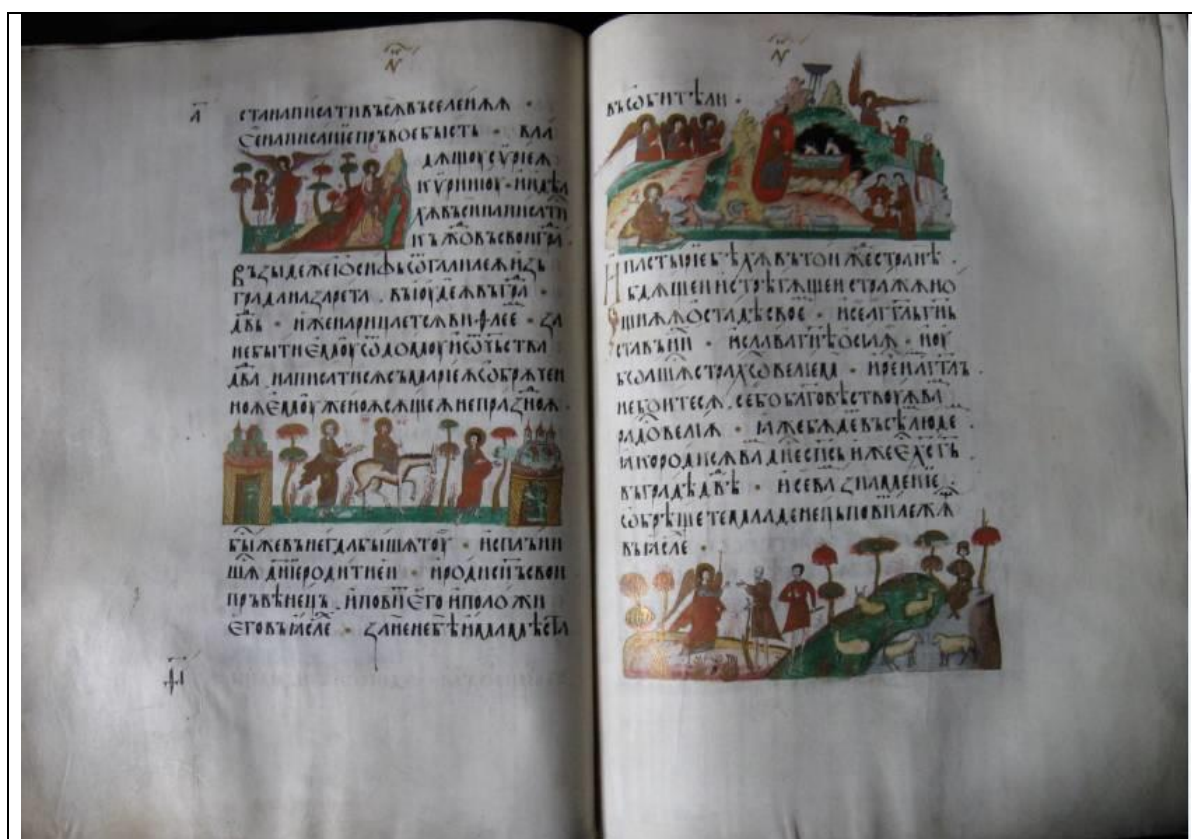 а҃
станаписативъсѫвъселенѫѫ ·
Сенаписанїепръвоебысть · вла
дѫщоу сѵрїеѫ
кѵринїоу · иидѣа
хѫ въси написати
къждо въ свои гра
Възыдеже їѡсифь ѿ галилеѫ изь
града назарета . въ їоудеѫ въ гра
двь · иже нарицаетсѧ виѳлее · за
не быти емоу ѿ домоу и ѿчьства
два . написатисѧ съ марїеѫ ѡбрѫчен
ноѫ емоу женоѫ сѫщеѫ непразноѫ .
Быже вънегда бышѫ тоу · исплъни
шѫ днїе родитиеи · и роди снъ свои
пръвѣнець . и пови его и положи
его въ ꙗсле · зане не бѣ има мѣста
въ ѡбитѣли .
И пастырїе бѣхѫ въ тоиже странѣ .
бдѧще и стрѣгѫще и стражѫ но
щнѫѫ о стадѣ свое · и се аггль гнь
ста въ ни · и слава гнѣ осїа · и оу
боашѧ страхо велїемь · и ре и аггль
не боитесѧ . се бо благовѣствоуѫ ва
радо велїѫ · ꙗже бѫде въсѣ люде .
ꙗко роди сѧ ва днеспсь иже е хс гь
въ градѣ двѣ · и се ва знаменїе .
ѡбрѣщете младенець повить лежѧ
въ ꙗсле ·